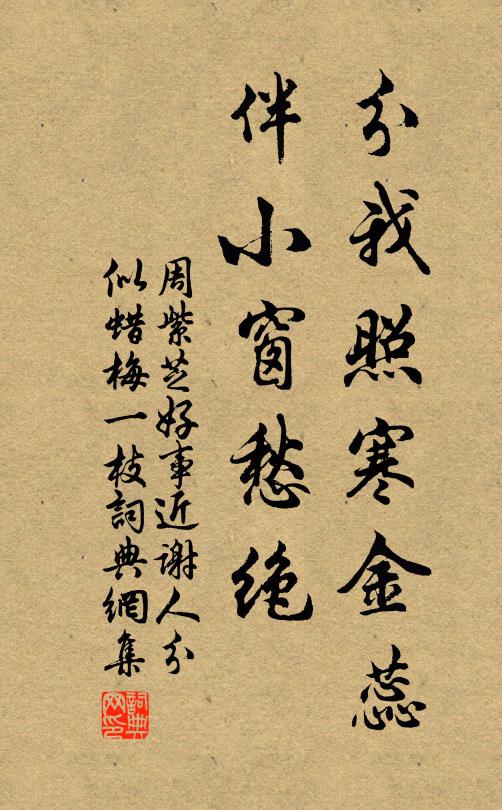 分我照寒金蕊
伴小窗愁绝
周紫芝好事近谢人分
似蜡梅一枝詞典網集
詞典
网印